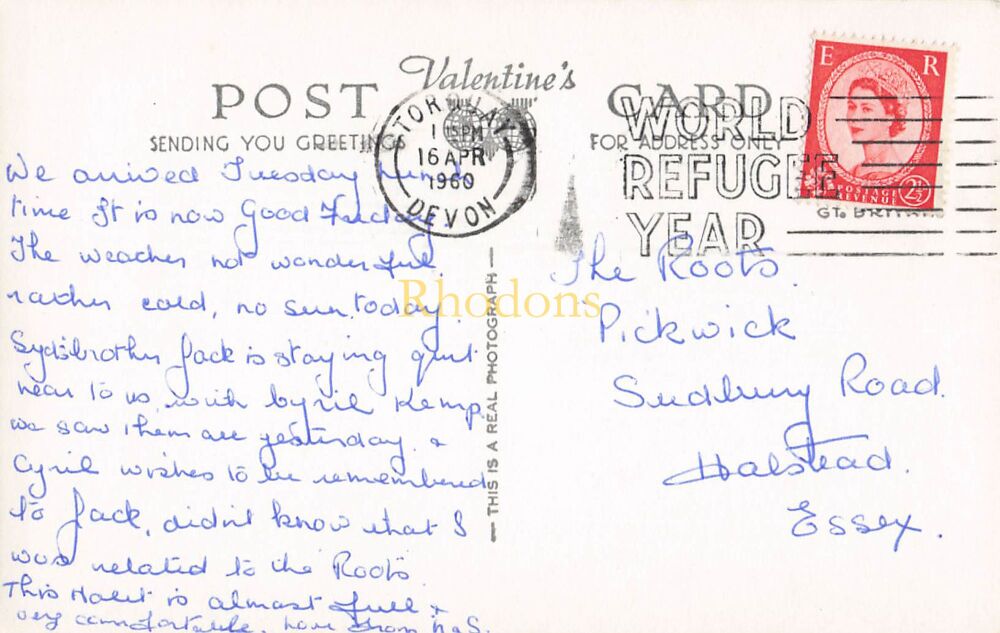 Valentine's
POST CARD
SENDING YOU GREETINGS
FOR ADDRESS ONLY
TORQUAY
1 15 PM
16 APR
1960
DEVON
WORLD
REFUGEE
YEAR
GT. BRITAIN
E R
POSTAGE
REVENUE
2½
We arrived Tuesday lunch
time It is now Good Friday.
The weather not wonderful
rather cold, no sun today.
Syd's brother Jack is staying quit
near to us, with Cyril Kemp.
we saw them all yesterday &
Cyril wishes to be remembered
to Jack, didn't know that I
was related to the Roots.
This Hotel is almost full &
very comfortable. Love from
The Roots
Pickwick
Sudbury Road.
Halstead.
Essex.
— THIS IS A REAL PHOTOGRAPH —
Rhodons